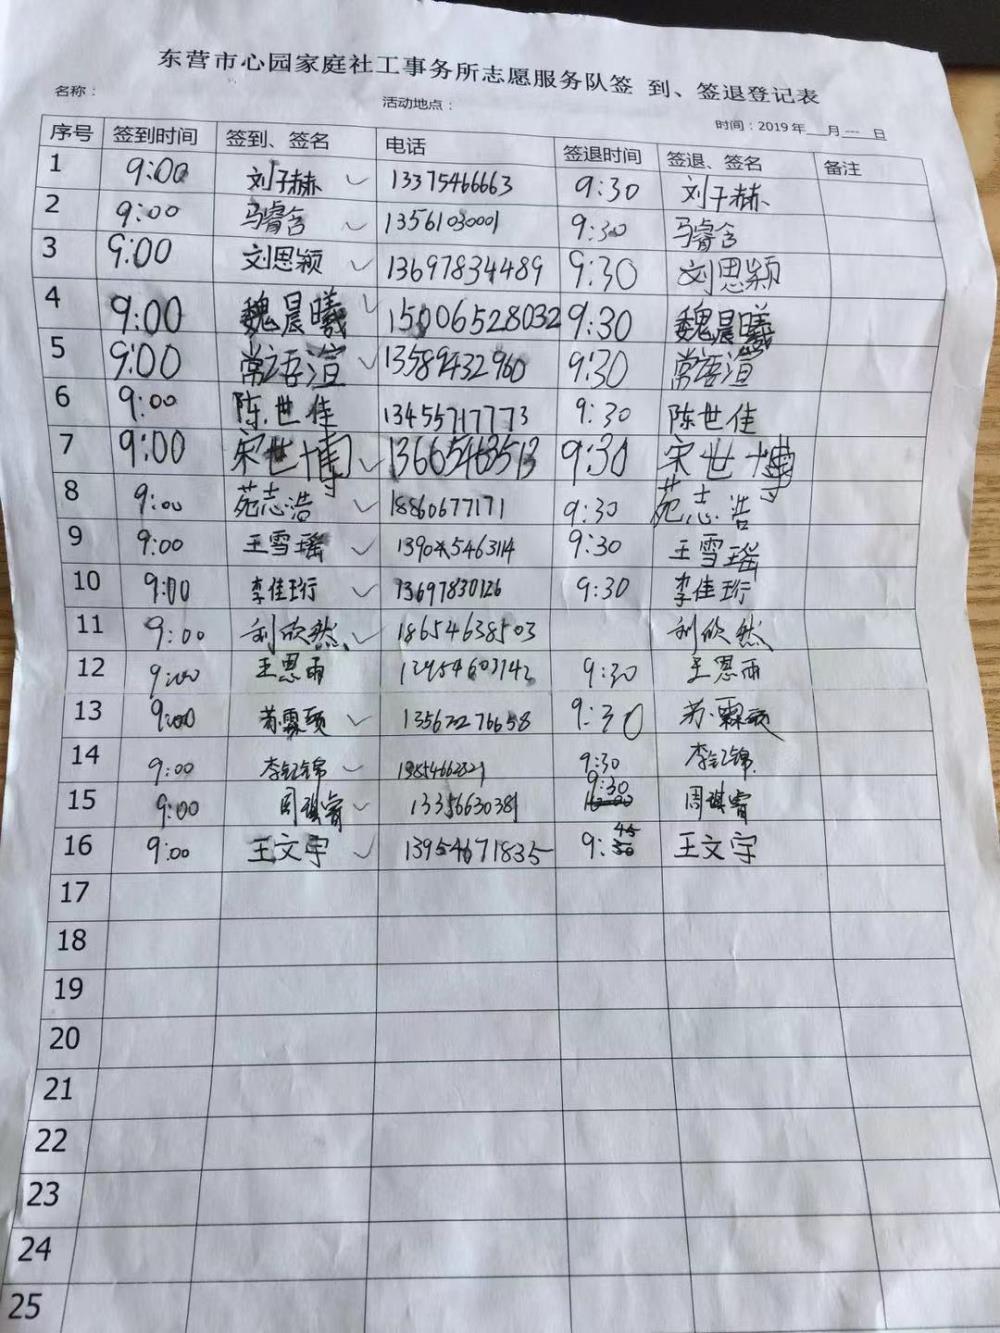 东营市心园家庭社工事务所志愿服务队签 到、签退登记表
名称： 活动地点： 时间：2019年___月---日
序号 签到时间 签到、签名 电话 签退时间 签退、签名 备注
1 9:00 刘子赫 ✓ 13375466663 9:30 刘子赫
2 9:00 马睿含 ✓ 13561030001 9:30 马睿含
3 9:00 刘思颖 ✓ 13697834489 9:30 刘思颖
4 9:00 魏晨曦 ✓ 15006528032 9:30 魏晨曦
5 9:00 常语渲 ✓ 13589432960 9:30 常语渲
6 9:00 陈世佳 13455717773 9:30 陈世佳
7 9:00 宋世博 ✓ 13665463513 9:30 宋世博
8 9:00 苑志浩 ✓ 18860677171 9:30 苑志浩
9 9:00 王雪瑶 ✓ 9:30 王雪瑶
10 9:00 李佳珩 ✓ 13697830126 9:30 李佳珩
11 9:00 刘欣然 ✓ 18654638503 刘欣然
12 9:00 王恩雨 9:30 王恩雨
13 9:00 ✓ 9:30
14 9:00 ✓ 9:30
15 9:00 周琪睿 ✓ 13356630381 9:30 周琪睿
16 9:00 王文宇 ✓ 13954671835 9:45 王文宇
17
18
19
20
21
22
23
24
25